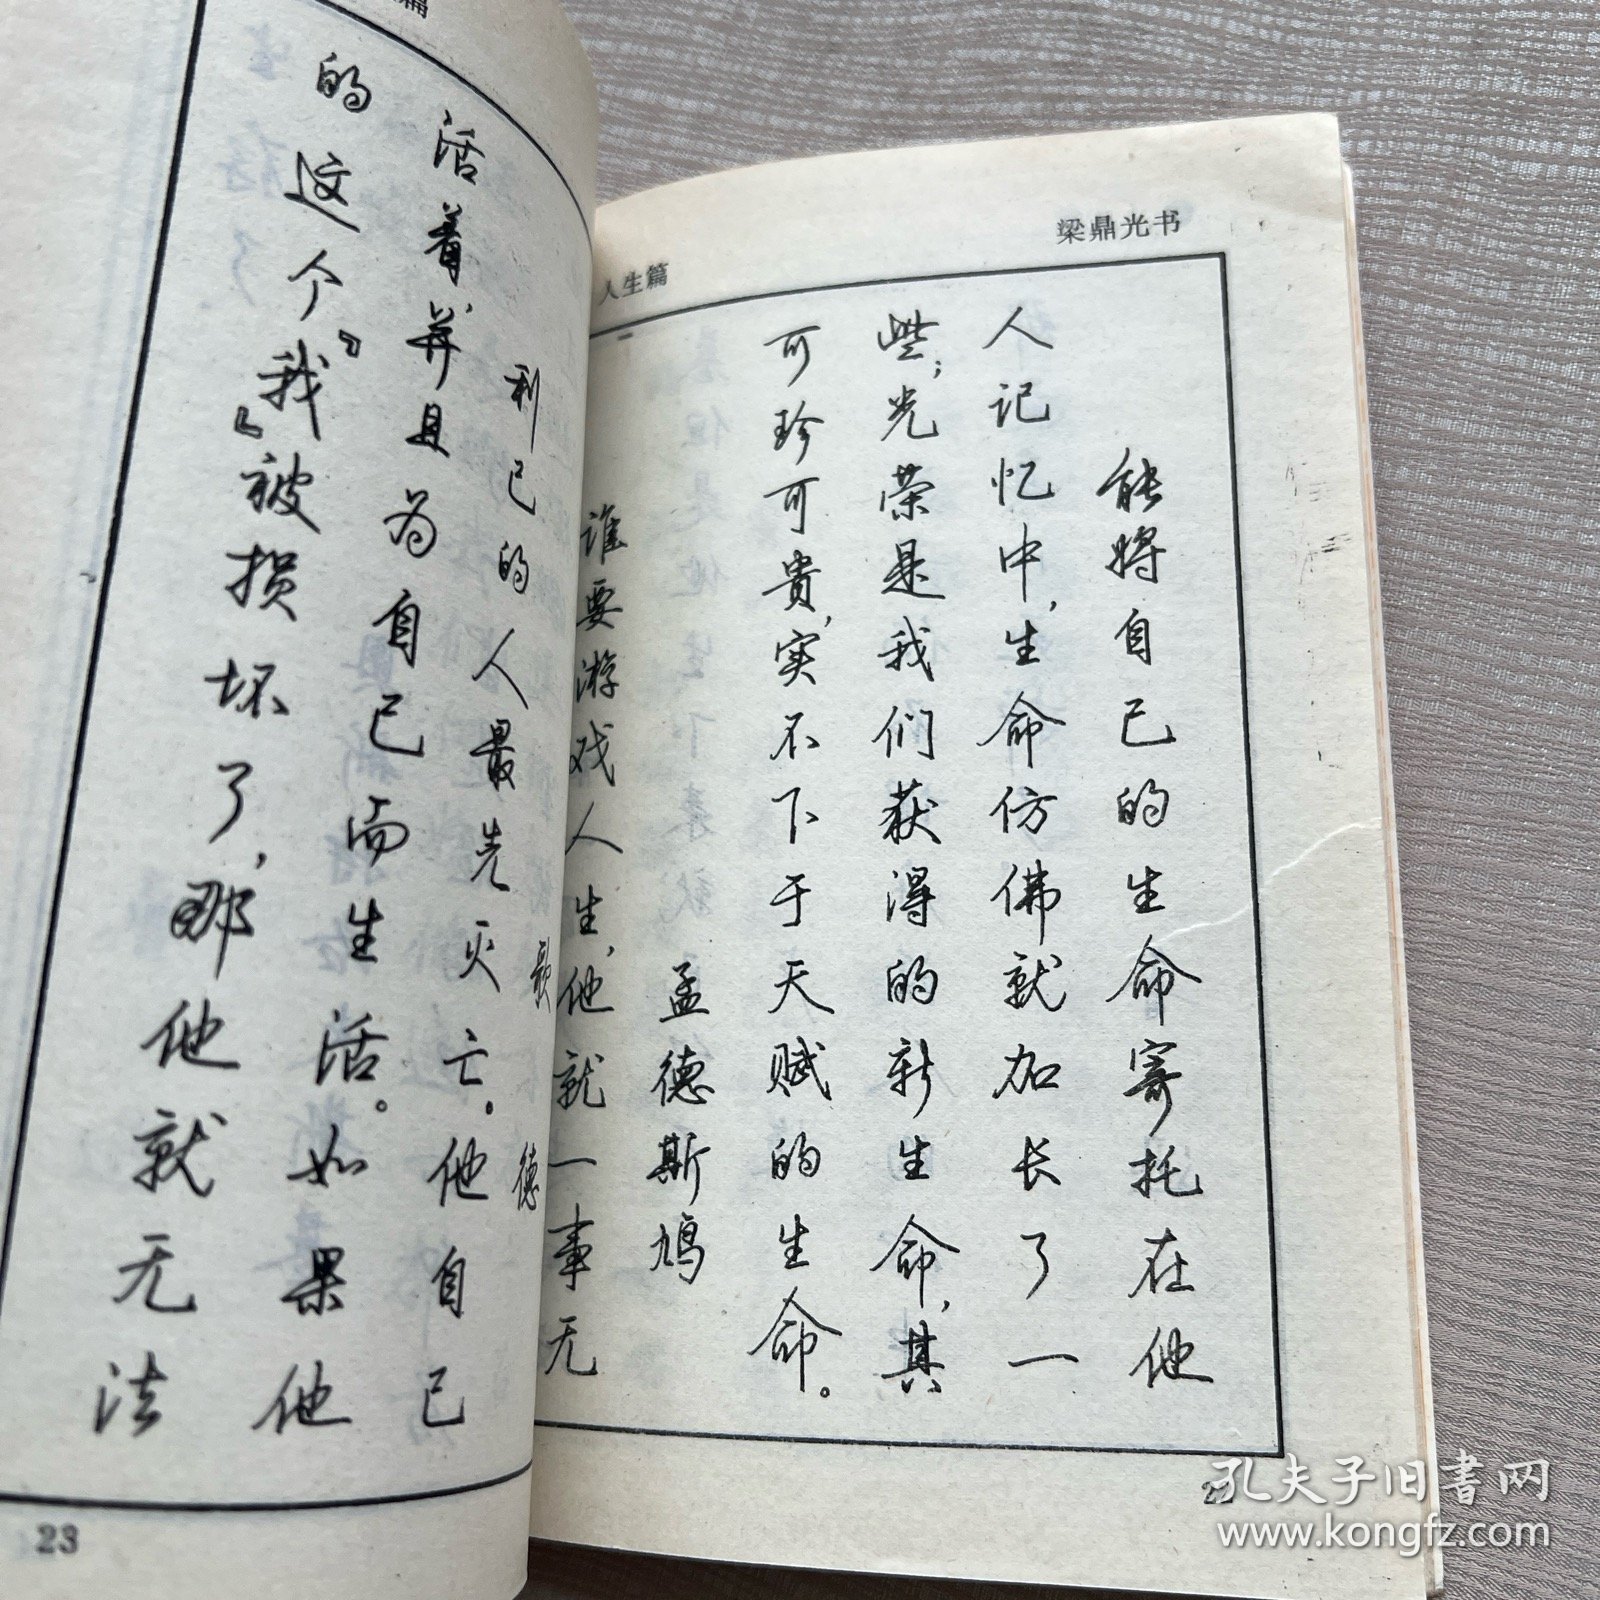 梁鼎光书
人生篇
能将自己的生命寄托在他
人记忆中,生命仿佛就加长了一
些;光荣是我们获得的新生命,其
可珍可贵,实不下于天赋的生命。
孟德斯鸠
谁要游戏人生,他就一事无
歌
德
利己的人最先灭亡。他自己
活着,并且为自己而生活。如果他
的这个『我』被损坏了,那他就无法
篇
23
孔夫子旧书网
www.kongfz.com